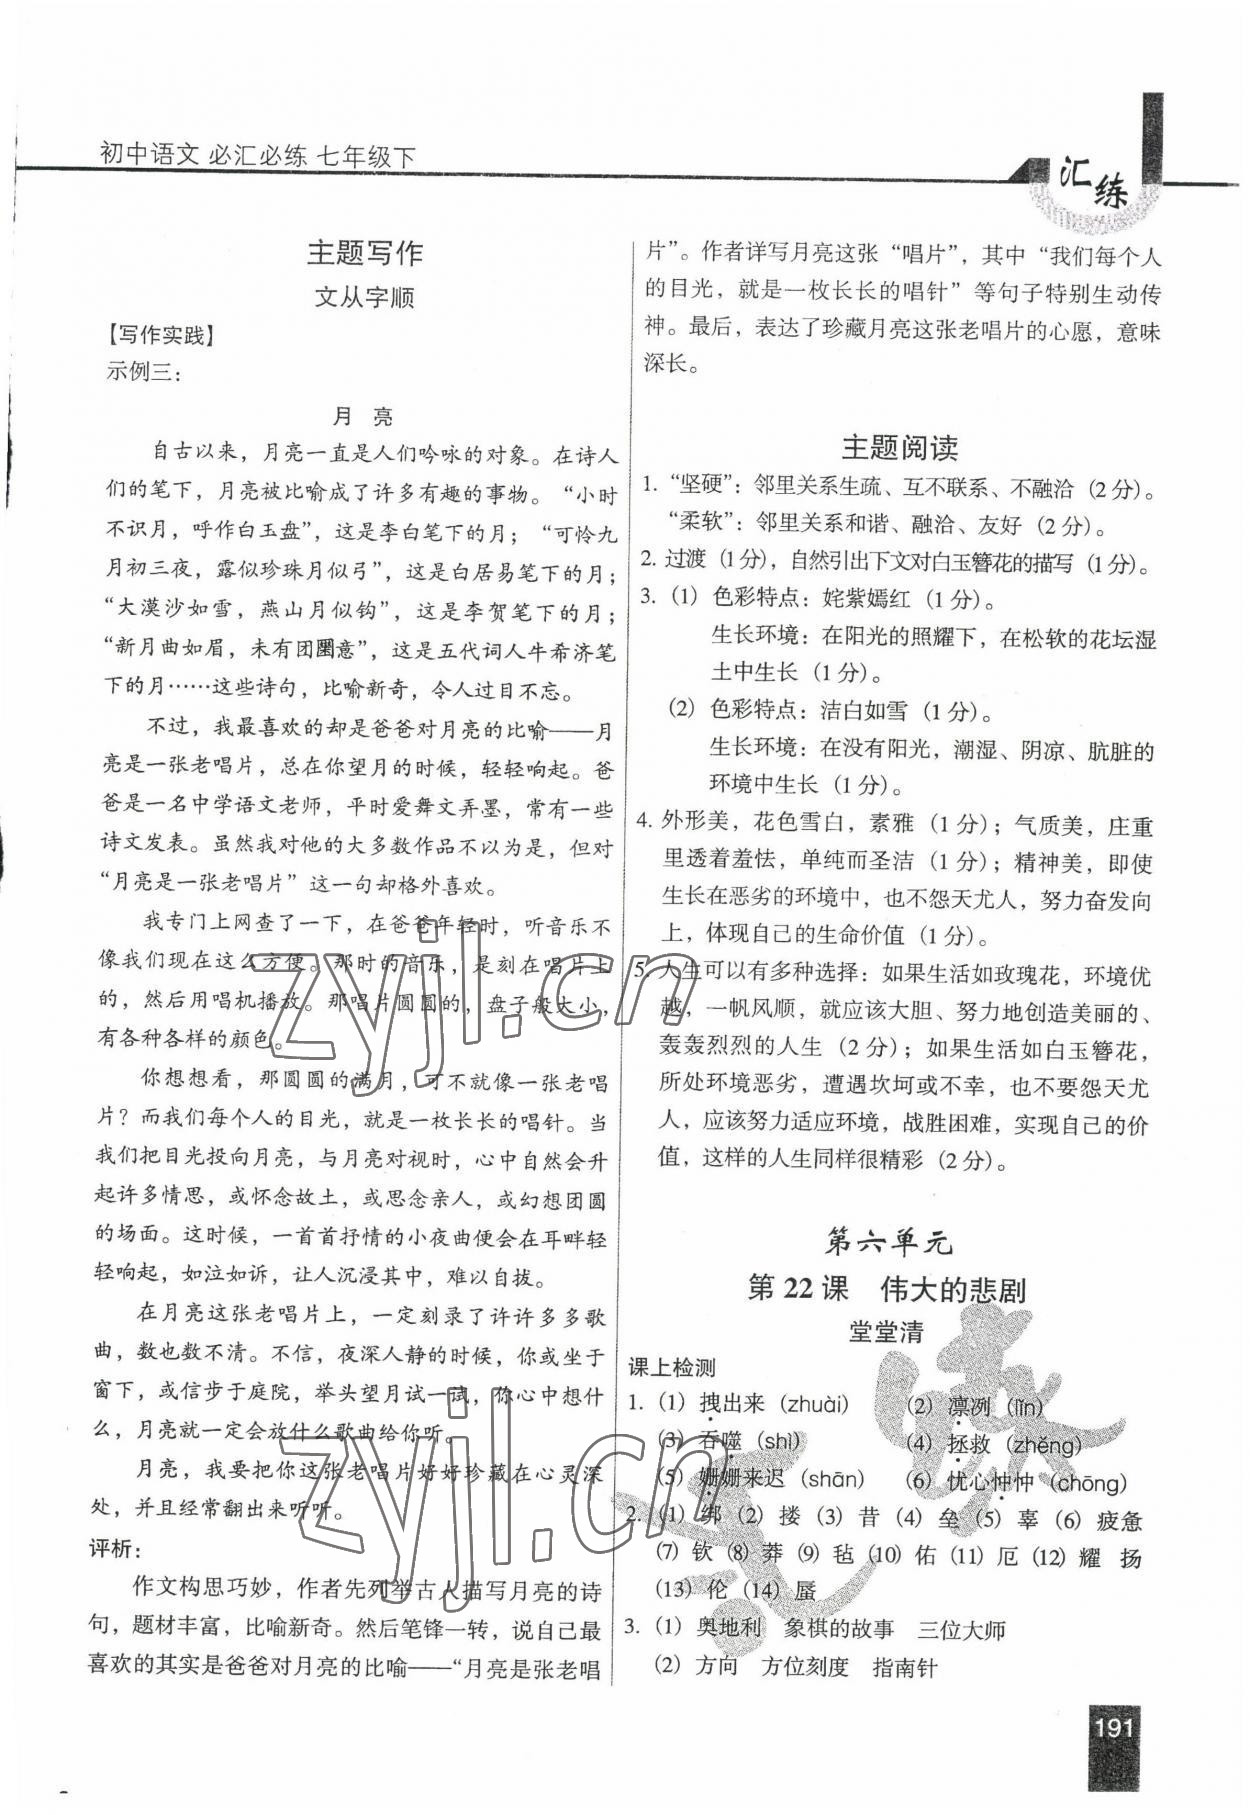 初中语文 必汇必练 七年级下
汇练
主题写作
文从字顺
【写作实践】
示例三：
月 亮
自古以来，月亮一直是人们吟咏的对象。在诗人
们的笔下，月亮被比喻成了许多有趣的事物。“小时
不识月，呼作白玉盘”，这是李白笔下的月；“可怜九
月初三夜，露似珍珠月似弓”，这是白居易笔下的月；
“大漠沙如雪，燕山月似钩”，这是李贺笔下的月；
“新月曲如眉，未有团圞意”，这是五代词人牛希济笔
下的月……这些诗句，比喻新奇，令人过目不忘。
不过，我最喜欢的却是爸爸对月亮的比喻——月
亮是一张老唱片，总在你望月的时候，轻轻响起。爸
爸是一名中学语文老师，平时爱舞文弄墨，常有一些
诗文发表。虽然我对他的大多数作品不以为是，但对
“月亮是一张老唱片”这一句却格外喜欢。
我专门上网查了一下，在爸爸年轻时，听音乐不
像我们现在这么方便。那时的音乐，是刻在唱片上
的，然后用唱机播放。那唱片圆圆的，盘子般大小，
有各种各样的颜色。
你想想看，那圆圆的满月，可不就像一张老唱
片？而我们每个人的目光，就是一枚长长的唱针。当
我们把目光投向月亮，与月亮对视时，心中自然会升
起许多情思，或怀念故土，或思念亲人，或幻想团圆
的场面。这时候，一首首抒情的小夜曲便会在耳畔轻
轻响起，如泣如诉，让人沉浸其中，难以自拔。
在月亮这张老唱片上，一定刻录了许许多多歌
曲，数也数不清。不信，夜深人静的时候，你或坐于
窗下，或信步于庭院，举头望月试一试，你心中想什
么，月亮就一定会放什么歌曲给你听。
月亮，我要把你这张老唱片好好珍藏在心灵深
处，并且经常翻出来听听。
评析：
作文构思巧妙，作者先列举古人描写月亮的诗
句，题材丰富，比喻新奇。然后笔锋一转，说自己最
喜欢的其实是爸爸对月亮的比喻——“月亮是张老唱
片”。作者详写月亮这张“唱片”，其中“我们每个人
的目光，就是一枚长长的唱针”等句子特别生动传
神。最后，表达了珍藏月亮这张老唱片的心愿，意味
深长。
主题阅读
1. “坚硬”：邻里关系生疏、互不联系、不融洽（2分）。
“柔软”：邻里关系和谐、融洽、友好（2分）。
2. 过渡（1分），自然引出下文对白玉簪花的描写（1分）。
3.（1）色彩特点：姹紫嫣红（1分）。
生长环境：在阳光的照耀下，在松软的花坛湿
土中生长（1分）。
（2）色彩特点：洁白如雪（1分）。
生长环境：在没有阳光，潮湿、阴凉、肮脏的
环境中生长（1分）。
4. 外形美，花色雪白，素雅（1分）；气质美，庄重
里透着羞怯，单纯而圣洁（1分）；精神美，即使
生长在恶劣的环境中，也不怨天尤人，努力奋发向
上，体现自己的生命价值（1分）。
5. 人生可以有多种选择：如果生活如玫瑰花，环境优
越，一帆风顺，就应该大胆、努力地创造美丽的、
轰轰烈烈的人生（2分）；如果生活如白玉簪花，
所处环境恶劣，遭遇坎坷或不幸，也不要怨天尤
人，应该努力适应环境，战胜困难，实现自己的价
值，这样的人生同样很精彩（2分）。
第六单元
第 22 课 伟大的悲剧
堂堂清
课上检测
1.（1）拽出来（zhuài） （2）凛冽（lǐn）
（3）吞噬（shì） （4）拯救（zhěng）
（5）姗姗来迟（shān） （6）忧心忡忡（chōng）
2.（1）绑（2）搂（3）昔（4）垒（5）辜（6）疲惫
（7）钦（8）莽（9）毡（10）佑（11）厄（12）耀 扬
（13）伦（14）蜃
3.（1）奥地利 象棋的故事 三位大师
（2）方向 方位刻度 指南针
zyjl.cn
zyjl.cn
191